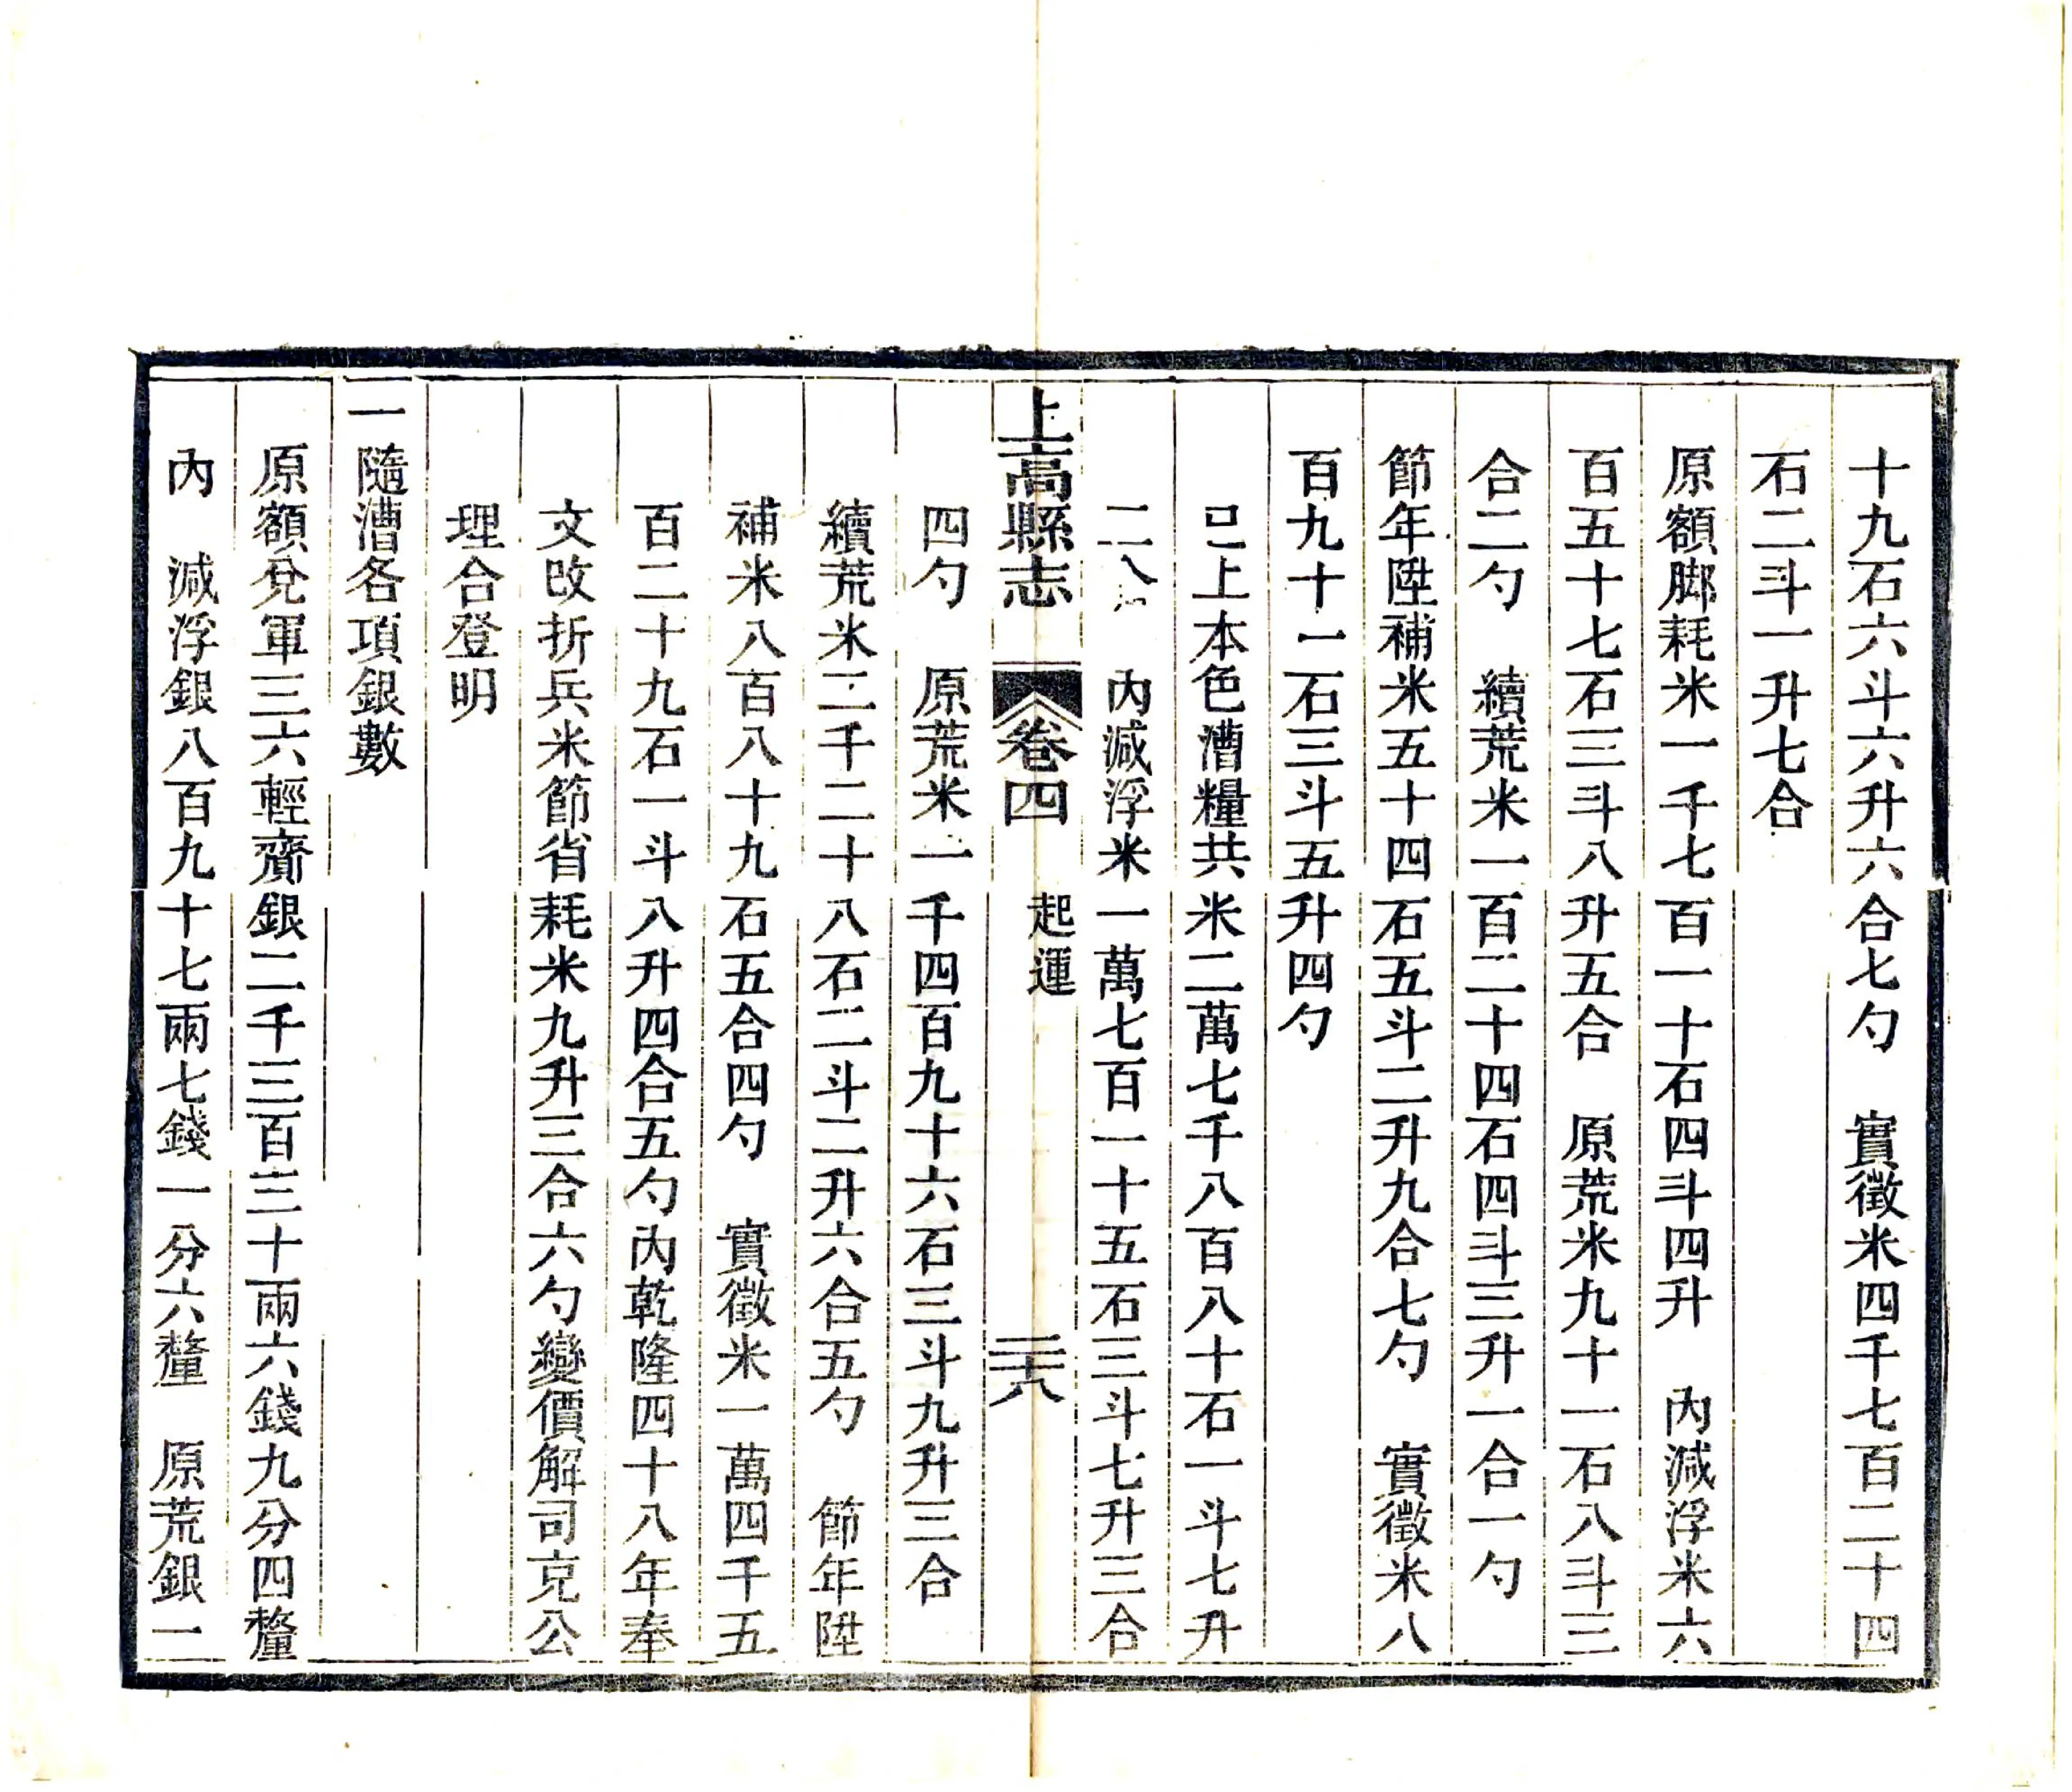 十九石六斗六升六合七勺　實徵米四千七百二十四
石二斗一升七合
原額脚耗米一千七百一十石四斗四升　內減浮米六
百五十七石三斗八升五合　原荒米九十一石八斗三
合二勺　續荒米一百二十四石四斗三升一合一勺
節年陞補米五十四石五斗二升九合七勺　實徵米八
百九十一石三斗五升四勺
已上本色漕糧共米二萬七千八百八十石一斗七升
二合　內減浮米一萬七百一十五石三斗七升三合
上高縣志　卷四　起運　二十八
四勺　原荒米一千四百九十六石三斗九升三合
續荒米二千二十八石二斗二升六合五勺　節年陞
補米八百八十九石五合四勺　實徵米一萬四千五
百二十九石一斗八升四合五勺內乾隆四十八年奉
文改折兵米節省耗米九升三合六勺變價解司克公
理合登明
一隨漕各項銀數
原額兌軍三六輕齎銀二千三百三十兩六錢九分四釐
內　減浮銀八百九十七兩七錢一分六釐　原荒銀一